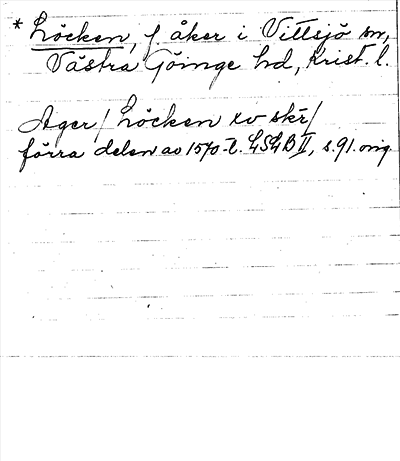 * Löcken, f. åker i Vittsjö sn,
Västra Göinge hd, Krist. l.
Ager / Löcken xv skr /
förra delen av 1570-t. LSLB II, s. 91. orig